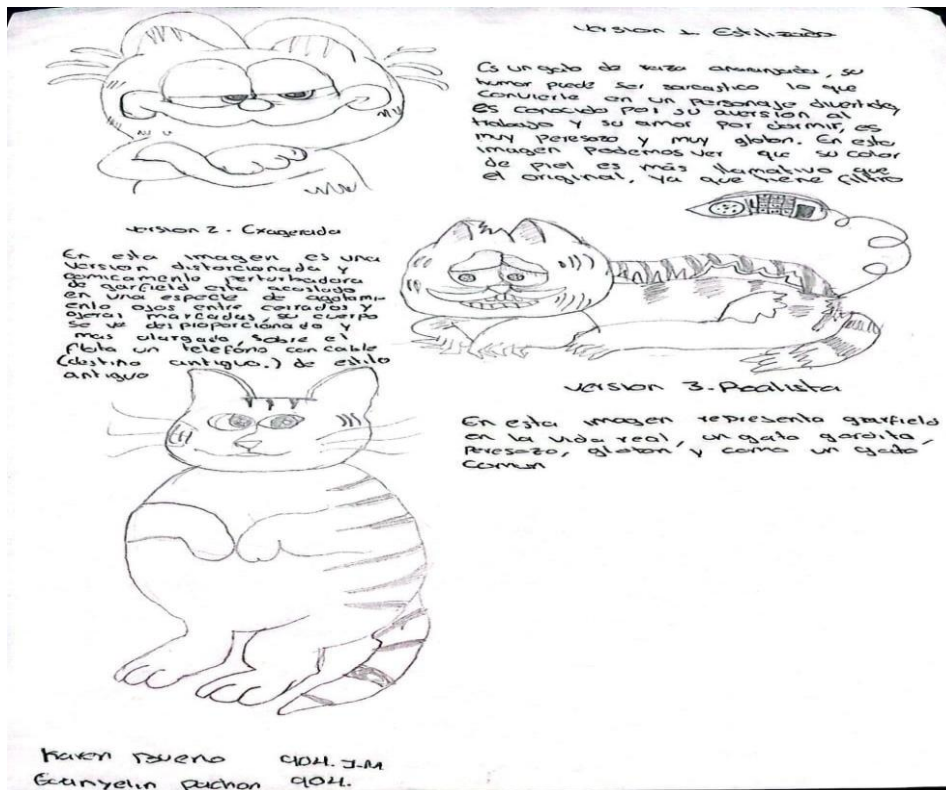 Version 1. Estilizado
Es un gato de raza anaranjados, su
humor puede ser sarcastico lo que
convierte en un personaje divertido y
es conocido por su aversion al
trabajo y su amor por dormir, es
muy peresozo y muy gloton. En esta
imagen podemos ver que su color
de piel es más llamativo que
el original, ya que tiene filtro
version 2 - Exagerada
En esta imagen es una
version distorcionada y
comicamente perturbadora
de garfield esta acostado
en una especie de agotami-
ento ojos entre cerrados y
ojeras marcadas, su cuerpo
se ve desproporcionado y
mas alargado, sobre el
flota un telefóno con cable
antiguo.) de estilo
antiguo
version 3-Realista
En esta imagen represento garfield
en la vida real, un gato gordito,
peresozo, gloton y como un gato
comun
Karen Bueno 904. J.M
pachon 904.